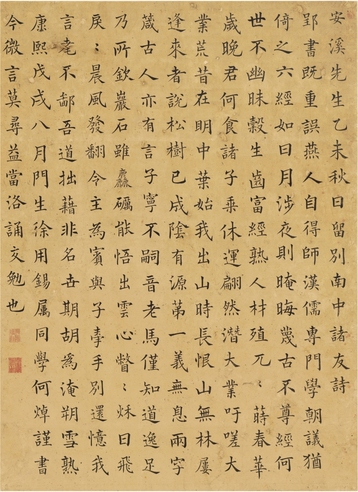 安溪先生乙未秋日留別南中諸友詩
郢書既重誤燕人自得師漢儒專門學朝議猶
倚之六經如日月涉夜則晻晦幾古不尊經何
世不幽昧穀生齒富經熟人材殖兀〻蔣春華
歲晚君何食諸子乘休運翩然潛大業吁嗟大
業荒昔在明中葉始我出山時長恨山無林屢
逢來者說松樹已成陰有源第一義無息兩字
箴古人亦有言子寧不嗣音老馬僅知道逸足
乃所欽巖石雖麤礪能悟出雲心瞥〻秋日飛
戾〻晨風發翻令主為賓與子摻手別還憶我
言耄不鄙吾道拙藉非名世期胡為淹朔雪熟
康熙戊戌八月門生徐用錫屬同學何焯謹書
今微言莫尋益當洛誦交勉也